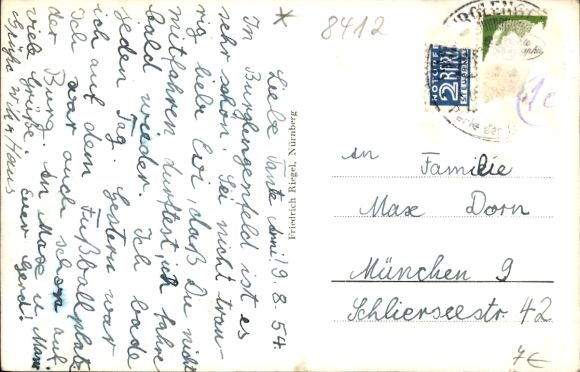 Liebe Tante Anni! 9.8.54.
In Burglengenfeld ist es
sehr schön. Sei nicht trau-
rig liebe Evi, daß Du nicht
mitfahren durftest, ich fahre
bald wieder. Ich bade
jeden Tag. Gestern war
ich auf dem Fußballplatz.
Ich war auch schon auf
der Burg. An Maxe u. Maxi
viele Grüße. Euer Gerd!
Grüße
Hans
Friedrich Riegel, Nürnberg
8412
NOTOPFER
2 BERLIN
STEUERMARKE
An
Familie
Max Dorn
München 9
Schlierseestr 42
1€
7€